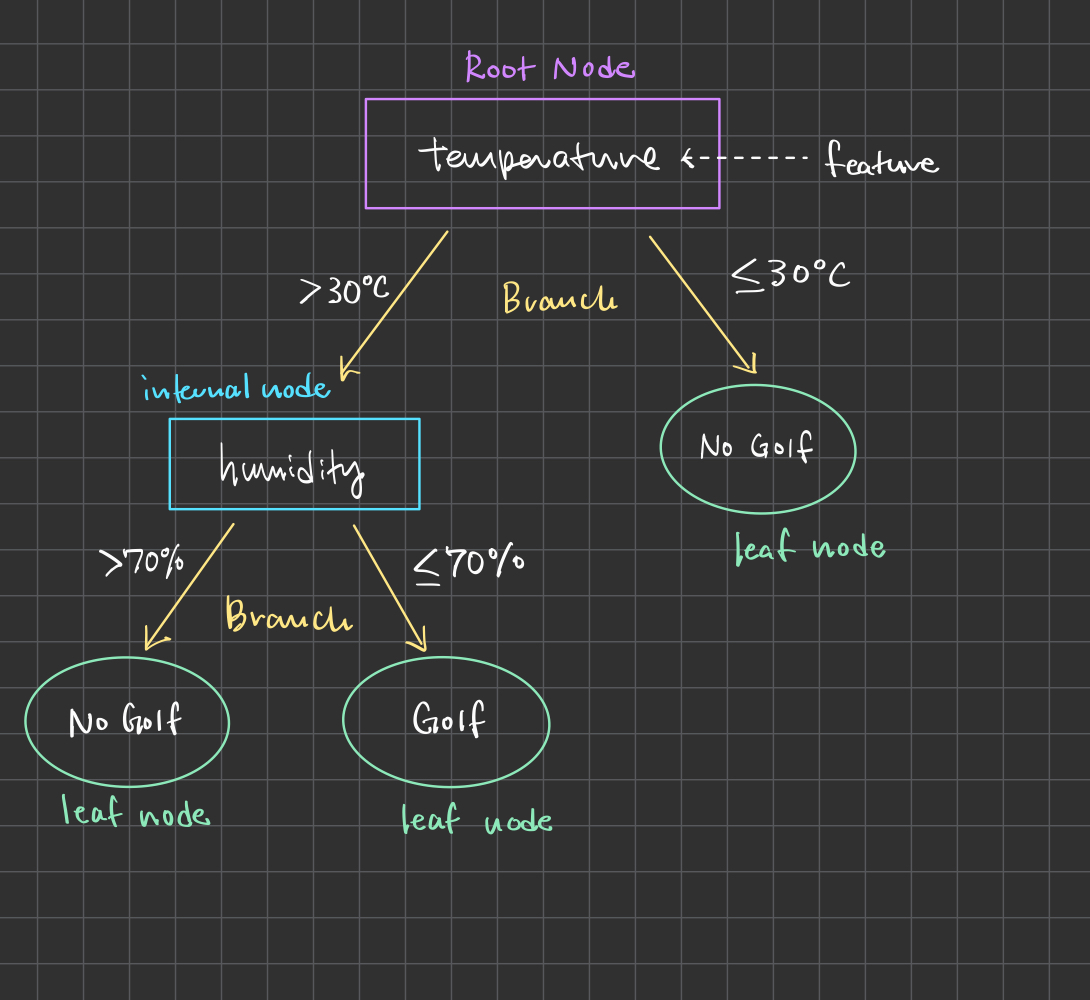 Root Node
temperature
feature
>30°C
Branch
≤30°C
internal node
humidity
No Golf
leaf node
>70%
Branch
≤70%
No Golf
Golf
leaf node
leaf node